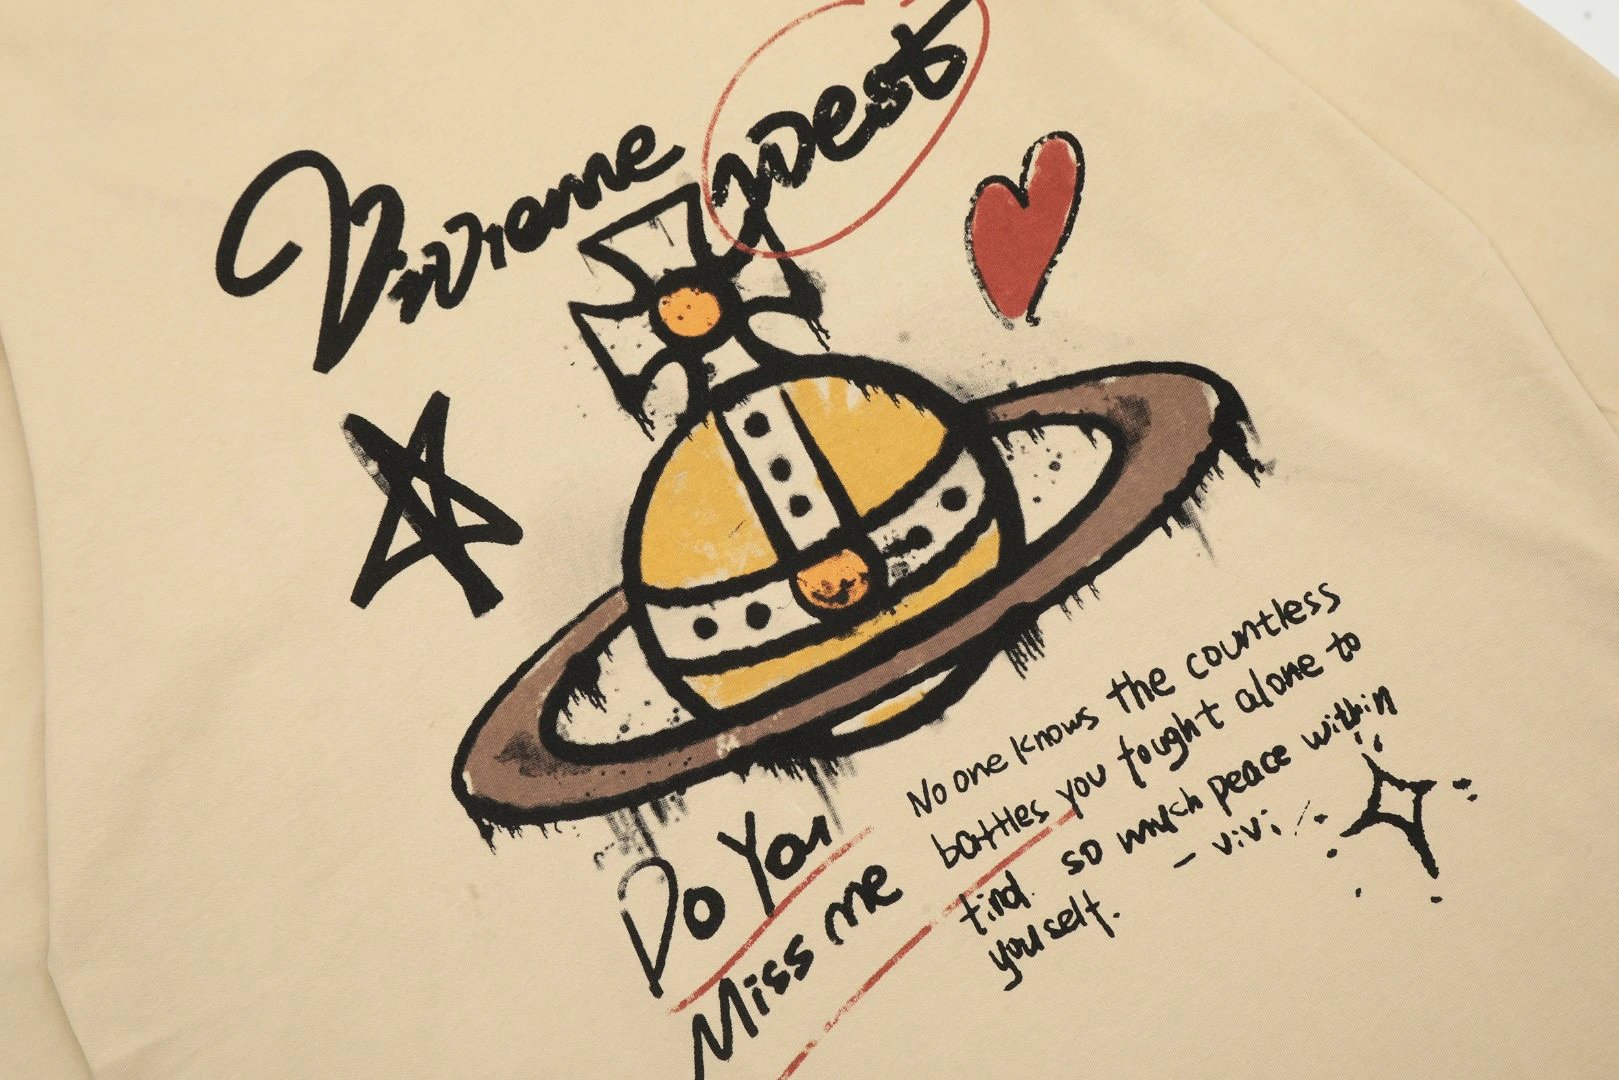 Vivienne West
No one knows the countless
battles you fought alone to
find. so much peace within
yourself. - vivi
Do You
Miss me